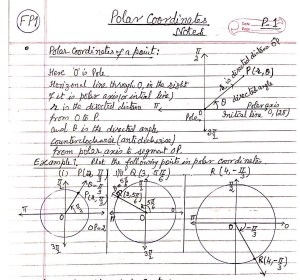 FP1
Polar Coordinates
Notes
P-1
Polar coordinates of a point:
Here 'O' is Pole
Horizontal line through O, in the right
of it is polar axis (or initial line)
r is the directed distance
from O to P.
and θ is the directed angle
counterclockwise (anticlockwise)
from polar axis to segment OP.
π/2
r is directed distance OP
P(r, θ)
θ directed angle
O
Pole
Polar axis
Initial line
Example 1, Plot the following points in polar coordinates
(i) P(2, π/3)
(ii) Q(3, 5π/6)
R(4, -π/3)
OP=2
π
3π/2
-π/3
R(4, -π/3)